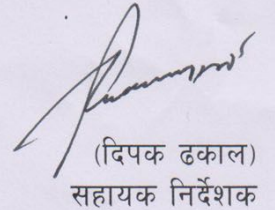 (दिपक ढकाल)
सहायक निर्देशक